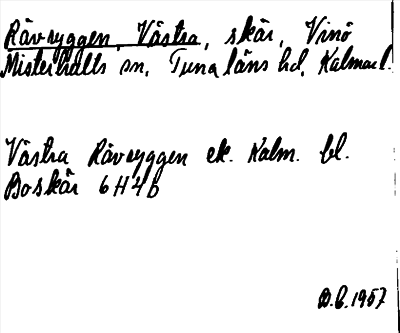 Rävryggen, Västra, skär, Vinö
Misterhults sn, Tunaläns hd, Kalmar l.
Västra Rävryggen ek. Kalm. bl.
Boskär 6H4b
B.L. 1957